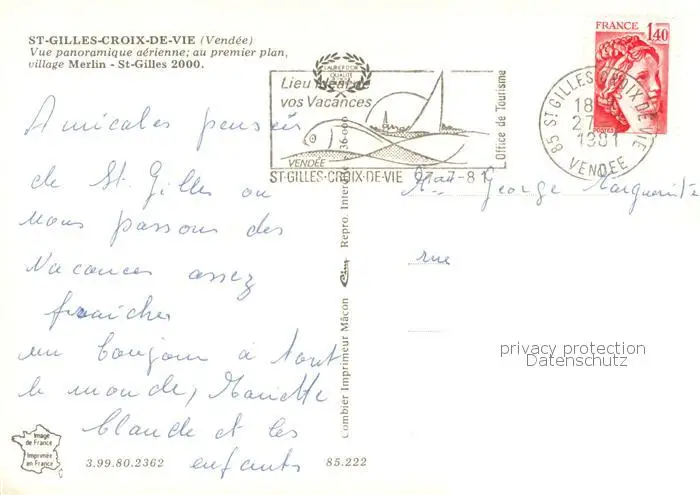 ST-GILLES-CROIX-DE-VIE (Vendée)
Vue panoramique aérienne; au premier plan,
village Merlin - St-Gilles 2000.
LAURIER D'OR
QUALITÉ
Lieu idéal de
vos Vacances
VENDÉE
ST-GILLES-CROIX-DE-VIE
Office de Tourisme
FRANCE 1,40
POSTES
85 ST GILLES CROIX DE VIE
18
27
1981
VENDEE
Amicales pensées
de St. Gilles ou
nous passons des
vacances assez
fraîches
un bonjour à tout
le monde, Mariette
Claude et les
enfants
Mme George Marguerite
rue
privacy protection
Datenschutz
Combier Imprimeur Mâcon Cim Repro. Interdite 36-000
Image
de France
Imprimée
en France
3.99.80.2362
85.222